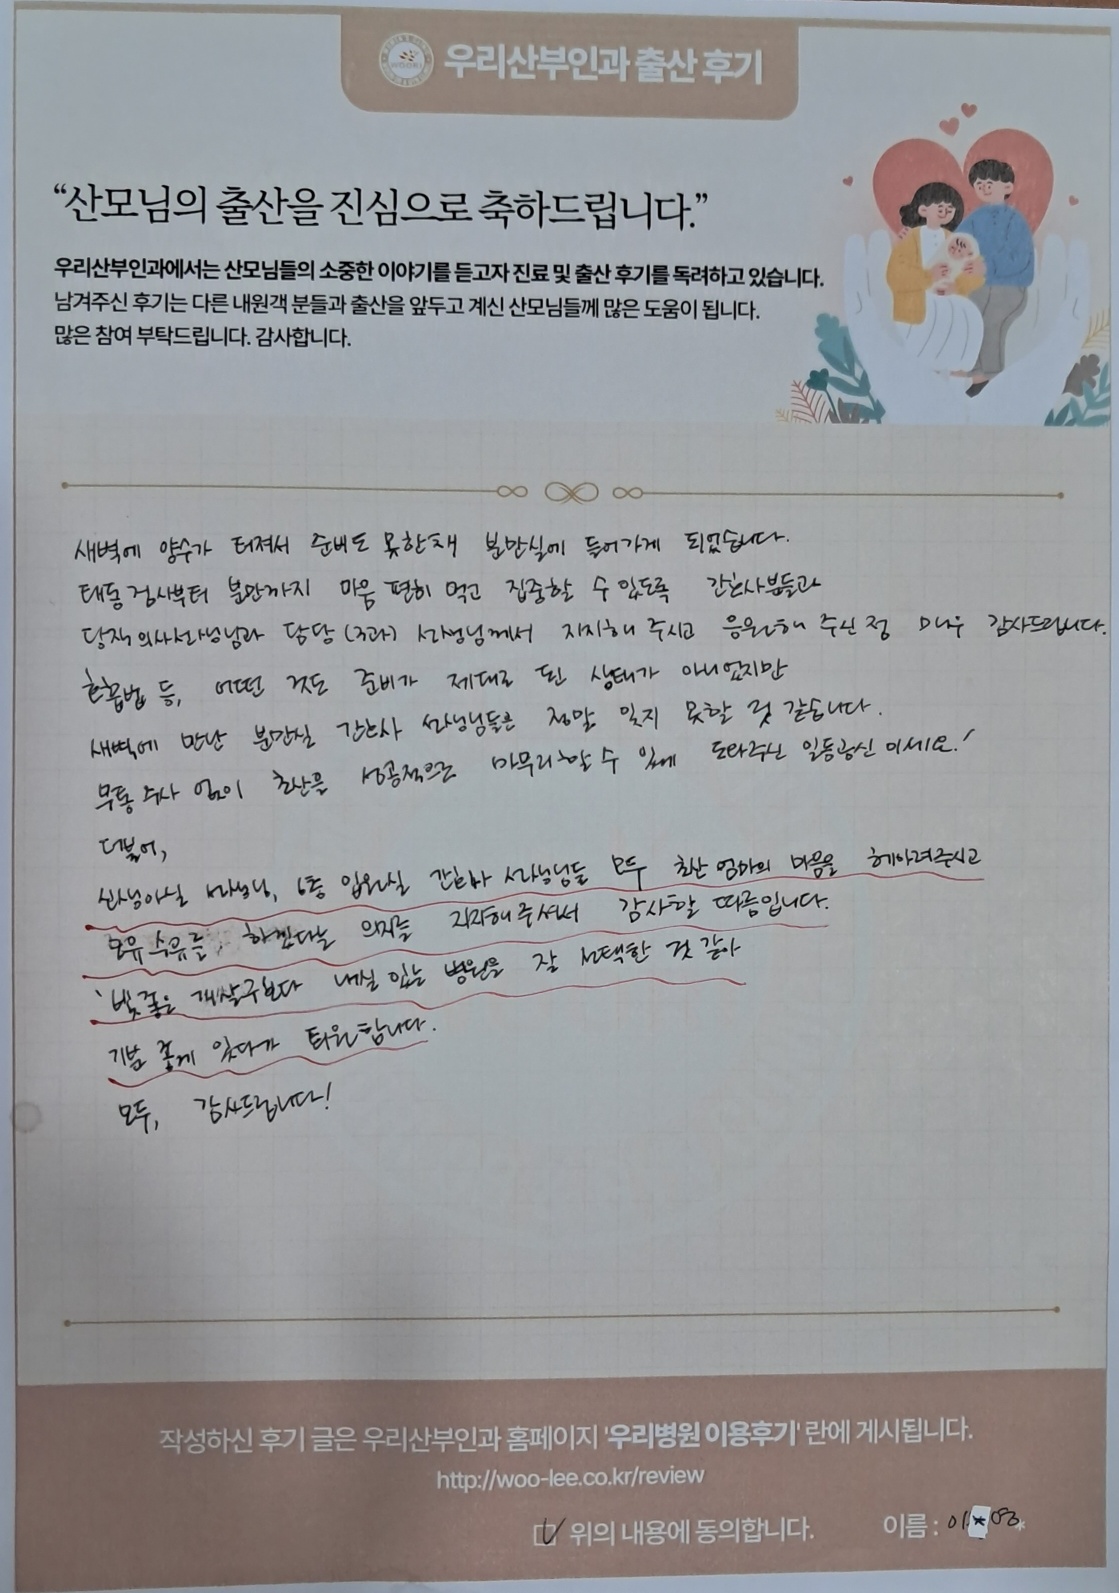 WOORI
우리산부인과 출산 후기
“산모님의 출산을 진심으로 축하드립니다.”
우리산부인과에서는 산모님들의 소중한 이야기를 듣고자 진료 및 출산 후기를 독려하고 있습니다.
남겨주신 후기는 다른 내원객 분들과 출산을 앞두고 계신 산모님들께 많은 도움이 됩니다.
많은 참여 부탁드립니다. 감사합니다.
새벽에 양수가 터져서 준비도 못한채 분만실에 들어가게 되었습니다.
태동검사부터 분만까지 마음 편히 먹고 집중할 수 있도록 간호사분들과
당직의사선생님과 담당 (3과) 선생님께서 지지해 주시고 응원해 주신 점 매우 감사드립니다.
호흡법 등, 어떤 것도 준비가 제대로 된 상태가 아니었지만
새벽에 만난 분만실 간호사 선생님들은 정말 잊지 못할 것 같습니다.
무통주사 없이 초산을 성공적으로 마무리할 수 있게 도와주신 일등공신 이세요!
더불어,
신생아실 선생님, 6층 입원실 간호사 선생님들 모두 초산 엄마의 마음을 헤아려주시고
모유수유를 하겠다는 의지를 지지해주셔서 감사할 따름입니다.
빛좋은 개살구보다 내실 있는 병원을 잘 선택한 것 같아
기분 좋게 있다가 퇴원합니다.
모두, 감사드립니다!
작성하신 후기 글은 우리산부인과 홈페이지 '우리병원 이용후기' 란에 게시됩니다.
http://woo-lee.co.kr/review
위의 내용에 동의합니다. 이름 :